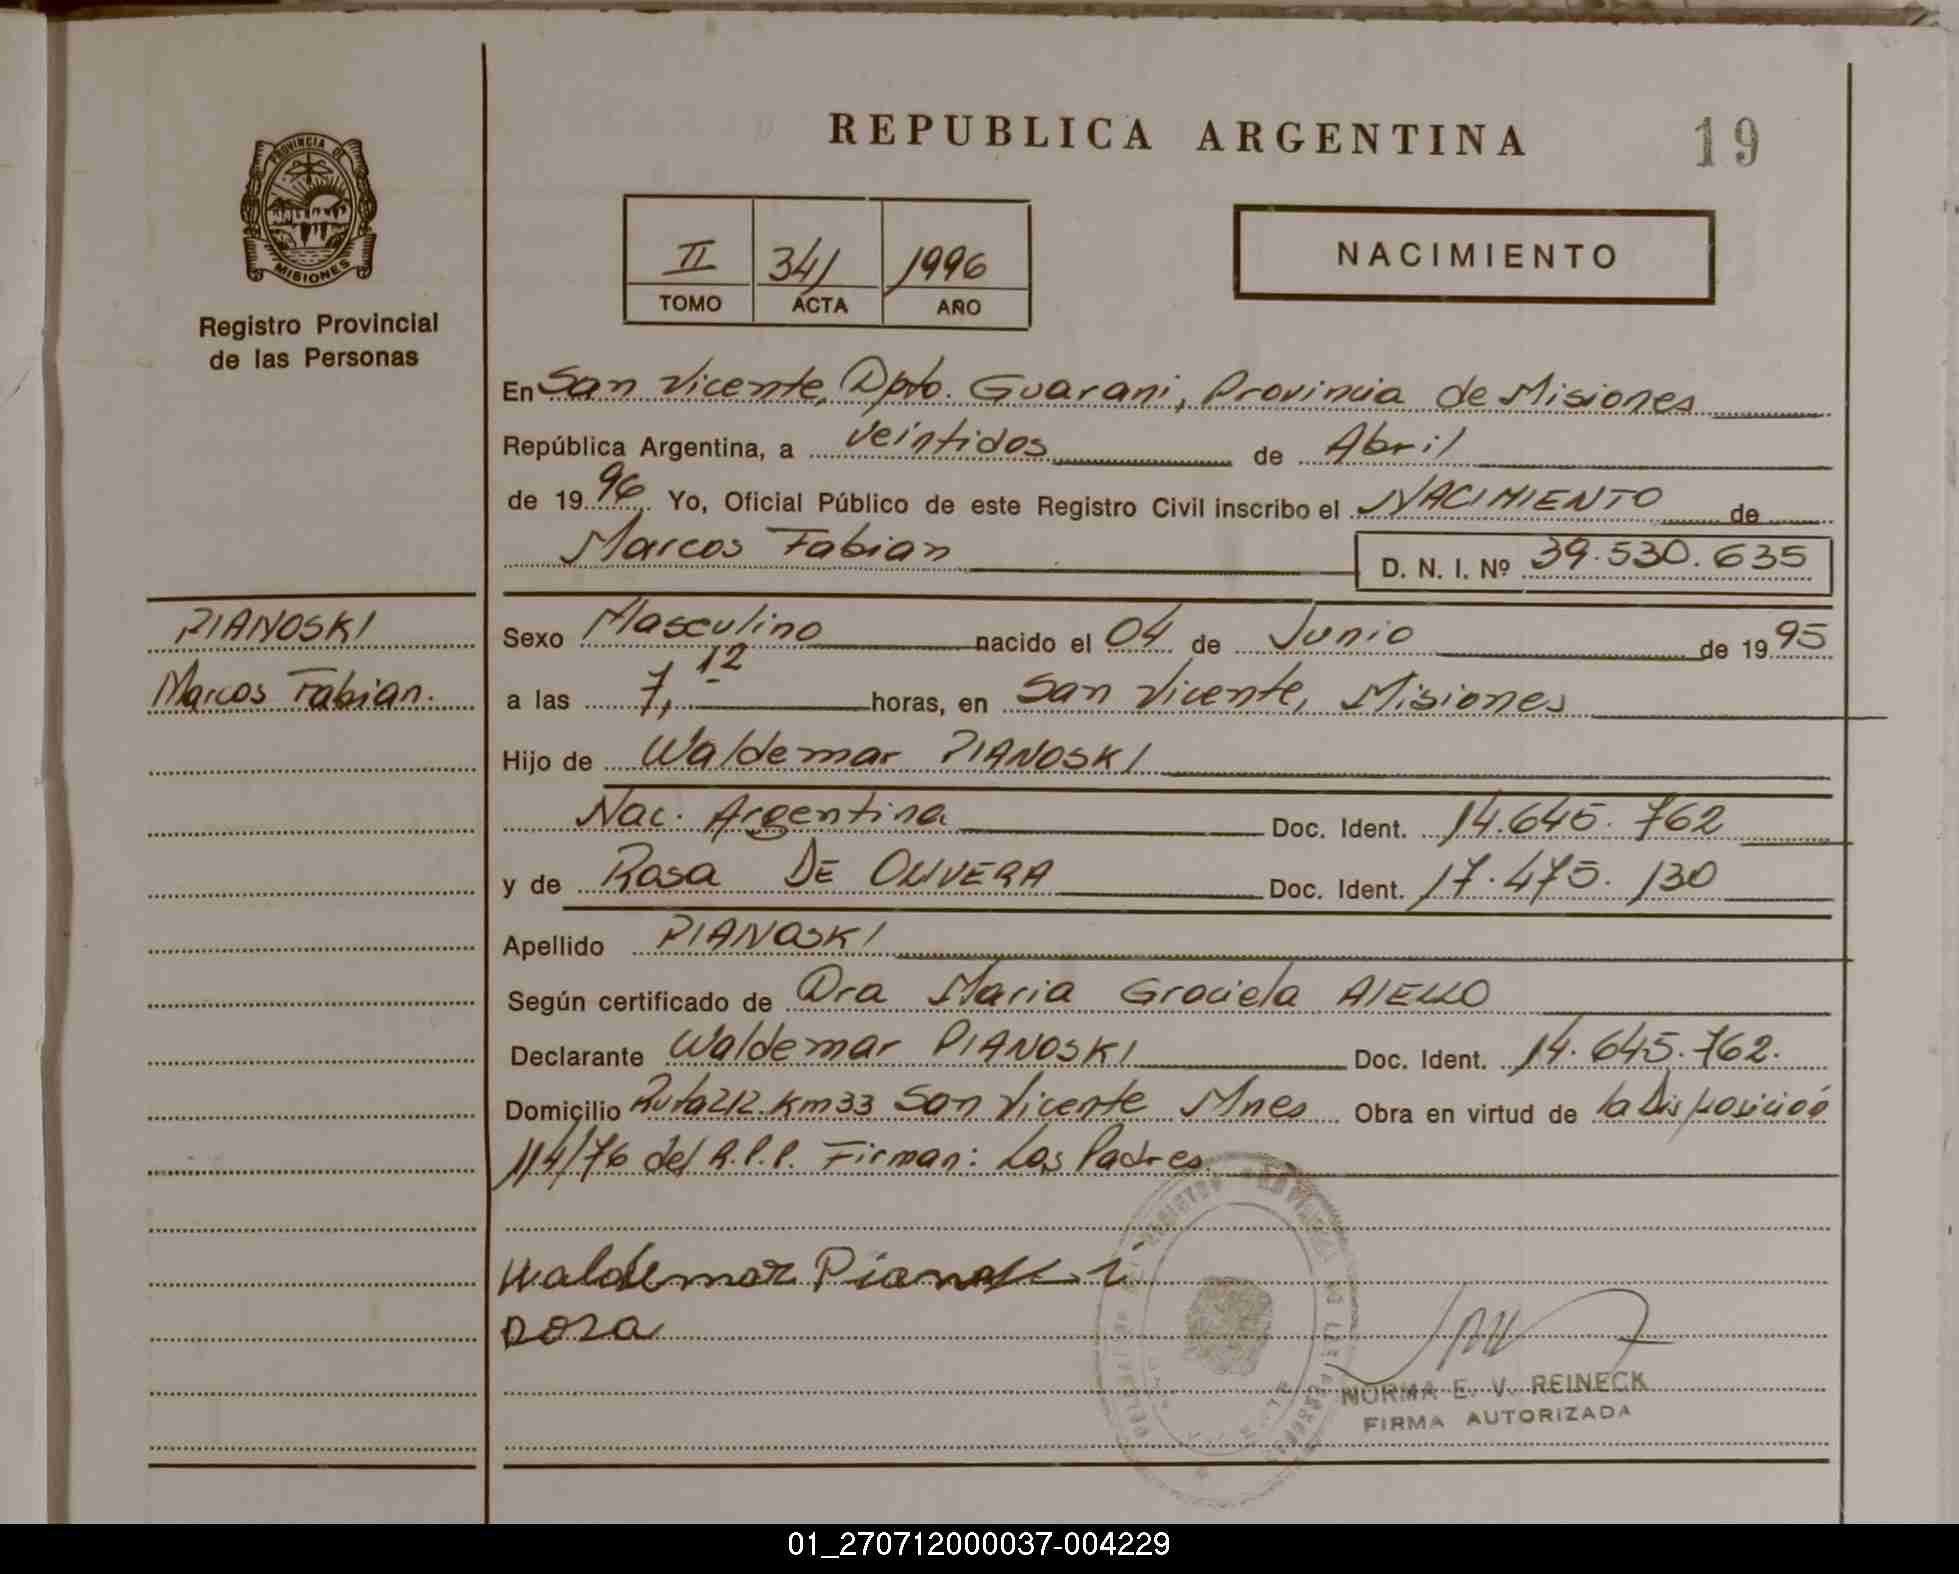 REPUBLICA ARGENTINA
19
PROVINCIA DE
MISIONES
Registro Provincial
de las Personas
II 341 1996
TOMO ACTA AÑO
NACIMIENTO
En San Vicente, Dpto. Guarani, Provincia de Misiones
República Argentina, a veintidos de Abril
de 1996 Yo, Oficial Público de este Registro Civil inscribo el NACIMIENTO de
Marcos Fabian D. N. I. Nº 39.530.635
PIANOSKI
Marcos Fabian.
Sexo Masculino nacido el 04 de Junio de 1995
a las 7,12 horas, en San Vicente, Misiones
Hijo de Waldemar PIANOSKI
Nac. Argentina Doc. Ident. 14.645.762
y de Rosa DE OLIVERA Doc. Ident. 17.475.130
Apellido PIANOSKI
Según certificado de Dra Maria Graciela AIELLO
Declarante Waldemar PIANOSKI Doc. Ident. 14.645.762.
Domicilio Ruta 212 Km 33 San Vicente Mnes Obra en virtud de la Disposición
114/76 del R.P.P. Firman: Los Padres
Waldemar Pianoski
Rosa
NORMA E. V. REINECK
FIRMA AUTORIZADA
01_270712000037-004229